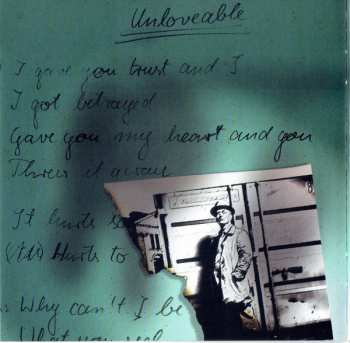 Unloveable
I gave you trust and I
I got betrayed
Gave you my heart and you
Threw it away
It hurts
Hurts to
Why can't I be
What you